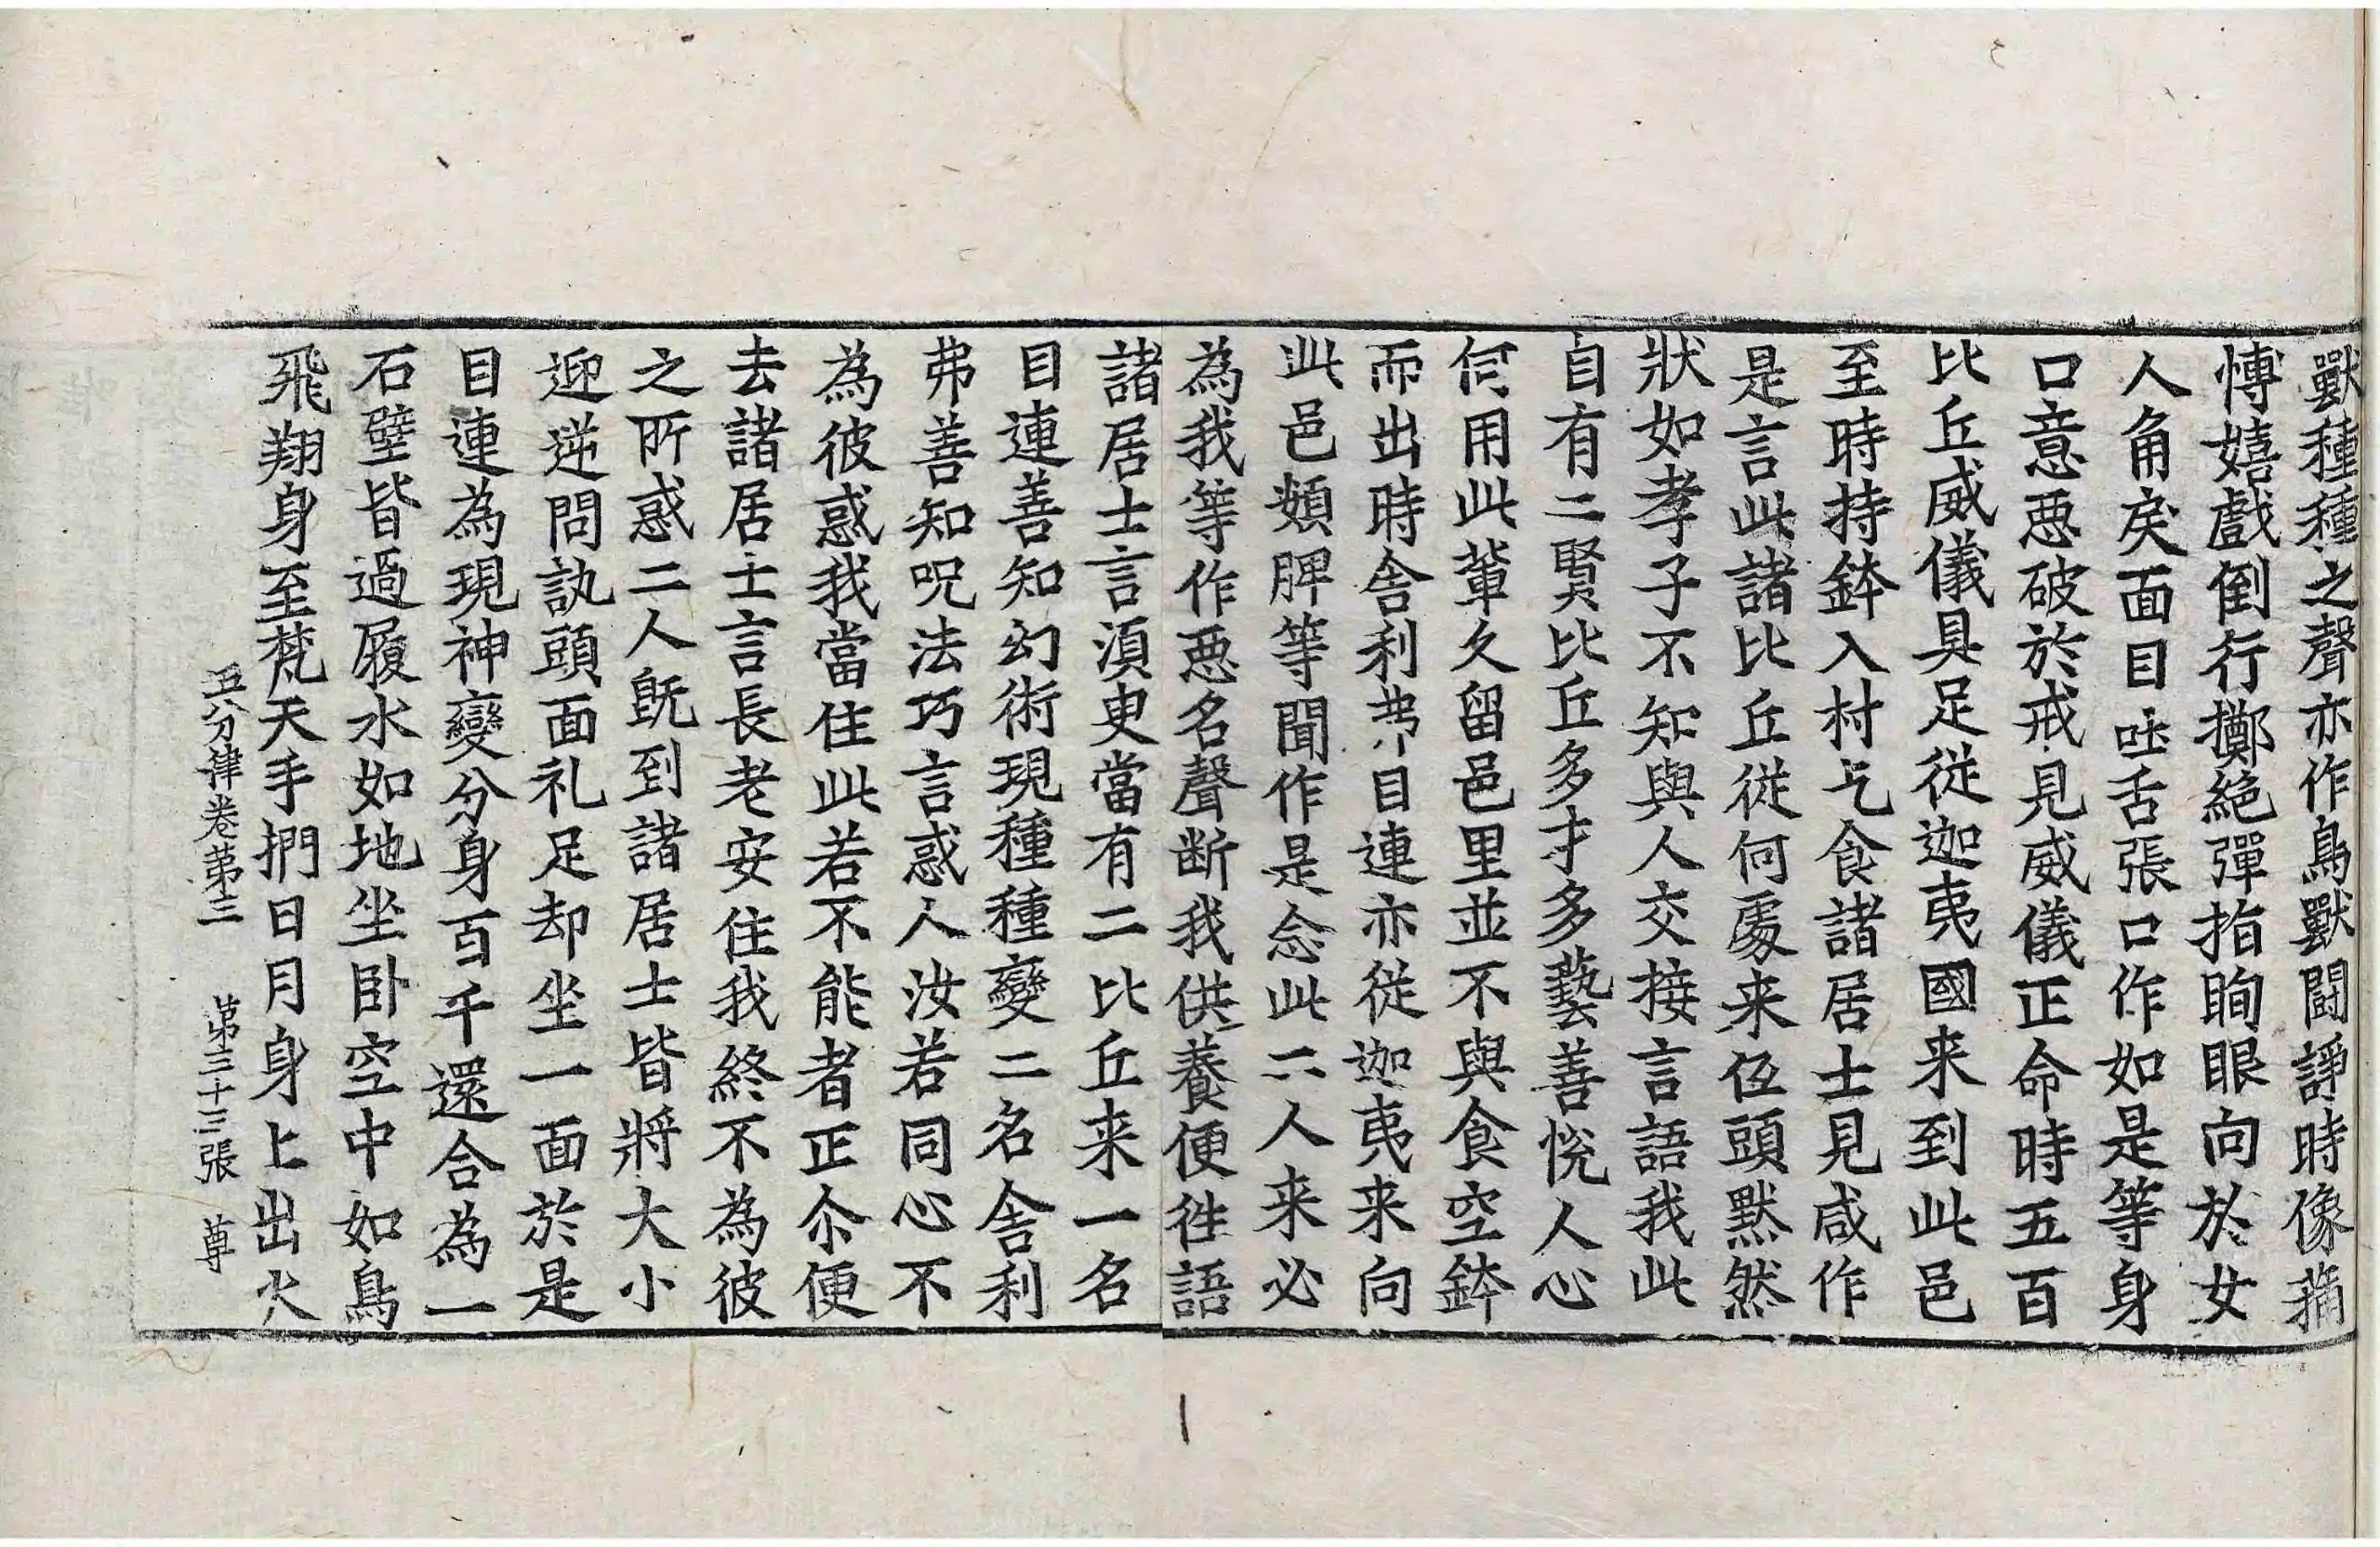 獸種種之聲亦作鳥獸闘諍時像蒱
愽嬉戲倒行擲絕彈指眴眼向於女
人角戾面目吐舌張口作如是等身
口意惡破於戒見威儀正命時五百
比丘威儀具足從迦夷國来到此邑
至時持鉢入村乞食諸居士見咸作
是言此諸比丘從何處来伍頭默然
狀如孝子不知與人交接言語我此
自有二賢比丘多才多藝善恱人心
何用此輩久留邑里並不與食空鉢
而出時舎利弗目連亦從迦夷来向
此邑頞脾等聞作是念此二人来必
為我等作惡名聲断我供養便徃語
諸居士言湏臾當有二比丘来一名
目連善知幻術現種種變二名舎利
弗善知呪法巧言惑人汝若同心不
為彼惑我當住此若不能者正尒便
去諸居士言長老安住我終不為彼
之所惑二人旣到諸居士皆將大小
迎逆問訊頭面礼足却坐一面於是
目連為現神變分身百千還合為一
石壁皆過履水如地坐卧空中如鳥
飛翔身至梵天手捫日月身上出火
五分律卷苐三 苐三十三張 尊